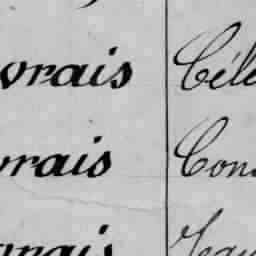 vrais Céle
vrais Cons
vrais